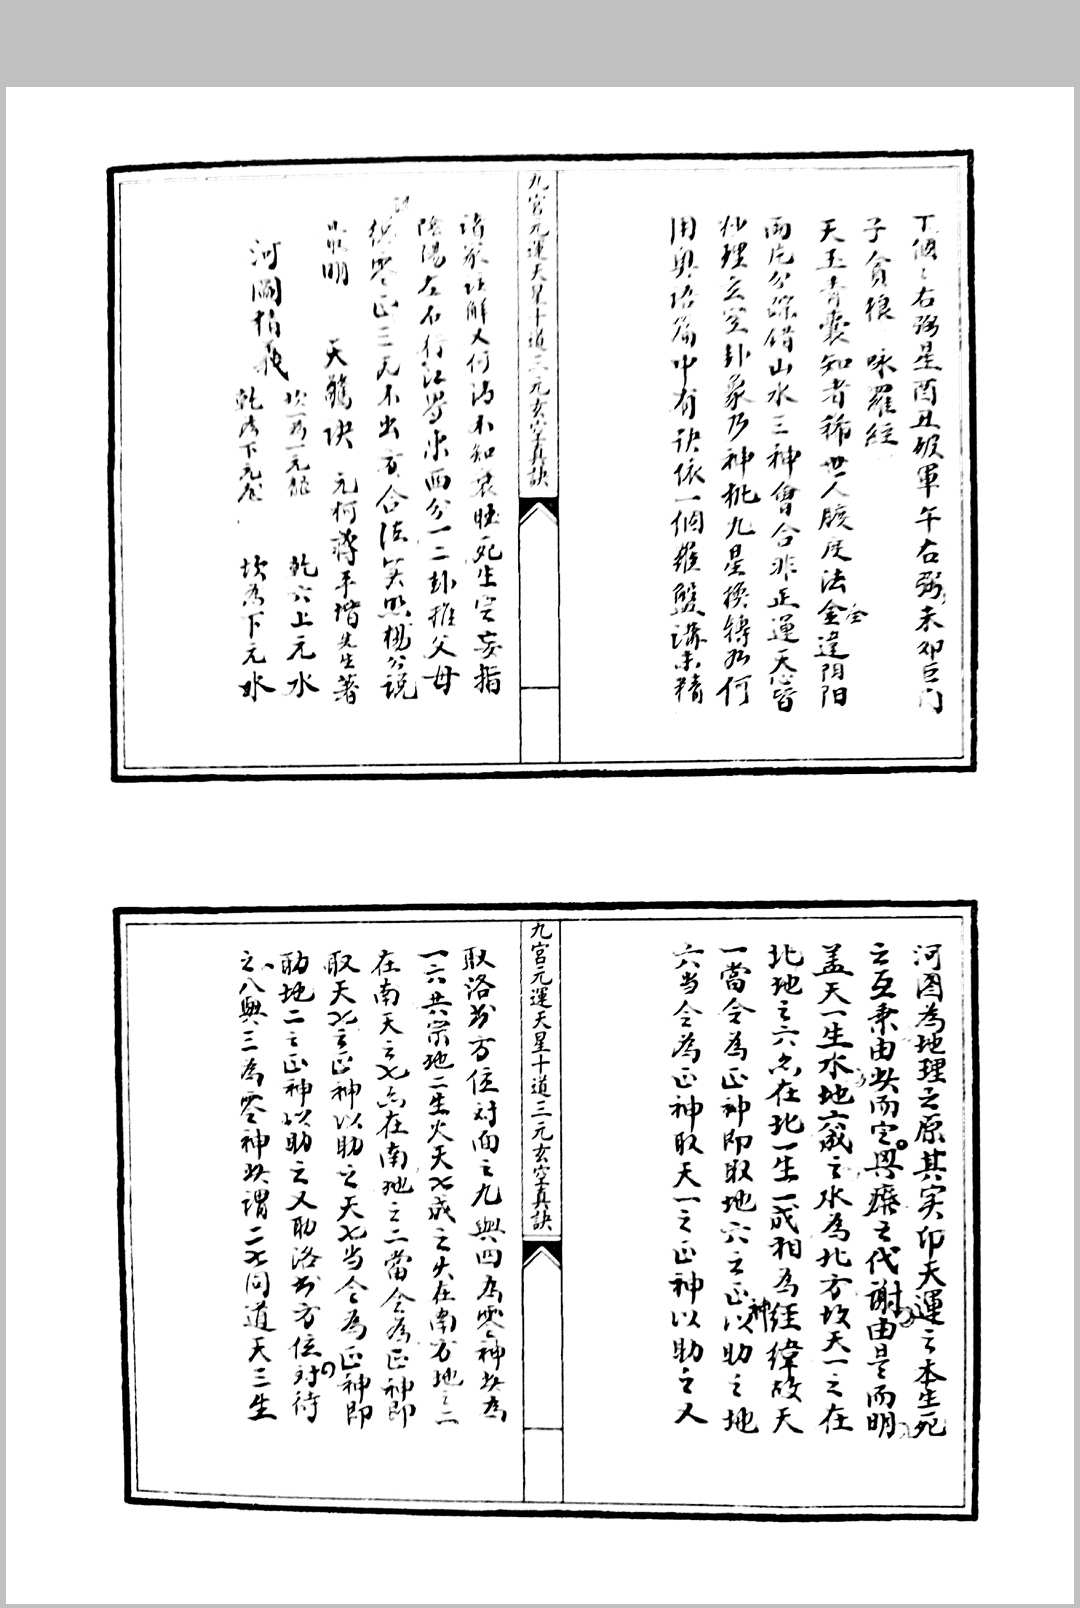 丁個個右弼星酉丑破軍午右弼未卯巨门
子貪狼 咏羅経
天玉青囊知者稀世人胲度法金違阴阳
両片分踪错山水三神會合非正運天心皆
妙理玄空卦象乃神枇九星换轉於何
用奥语篇中有訣依一個羅盤講未精
九宮元運天星十道三元玄空真訣
诸家註解又何为不知衰旺死生空妄指
陰陽左右行江東西分一二卦推父母
零正三元不出六合法笑煞楊公说
最明 天驚訣 元柯蔣平堦先生著
河圖拍義
坎一为一元龍 乾六上元水
乾为下元龙 坎為下元水
河图為地理之原其实卬天運之本生死
之互秉由此而定興癈之代謝由是而明
盖天一生水地六成之水為北方坎天一之在
北地之六亦在北一生一成相為経緯故天
一當令為正神即取地六之正神以助之地
六当令為正神取天一之正神以助之又
九宮元運天星十道三元玄空真訣
取洛书方位对面之九與四為零神此為
一六共宗地二生火天七成之火在南方地之二
在南天之七亦在南地之二當令為正神即
取天七之正神以助之天七当令為正神即
助地二之正神以助之又取洛书方位对待
之八與三為零神此謂二七同道天三生